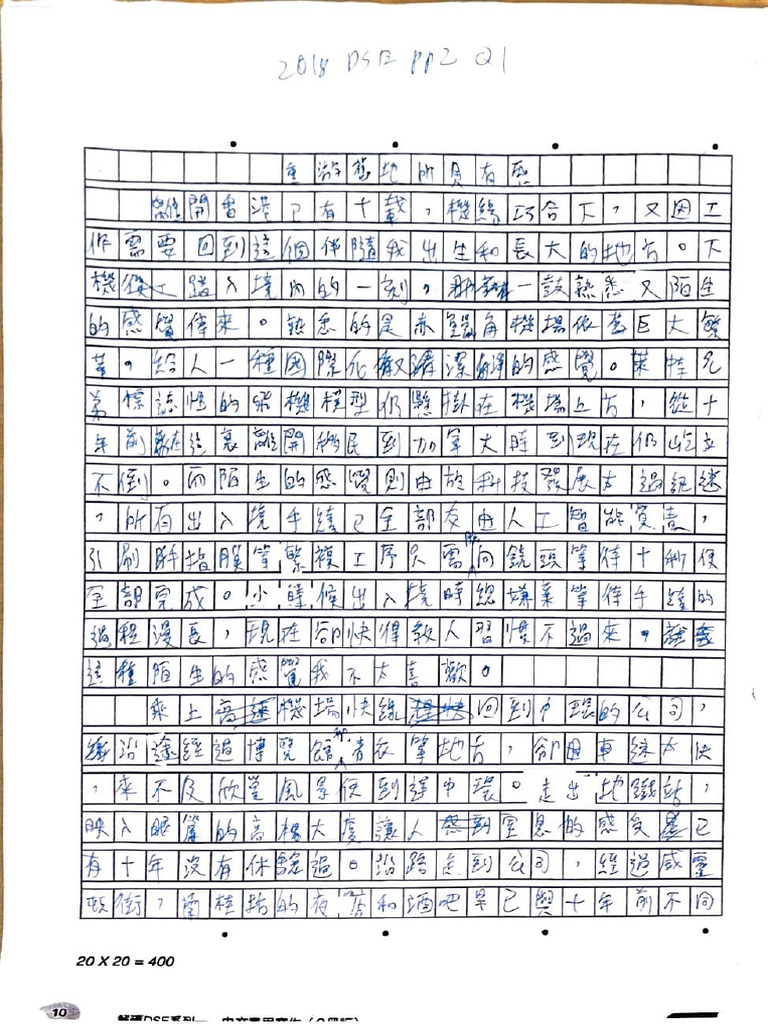 2018 DSE PP2 Q1
重游舊地所見有感
離開香港已有十載，機緣巧合下，又因工
作需要回到這個伴隨我出生和長大的地方。下
機後，踏入境內的一刻，一鼓熟悉又陌生
的感覺傳來。熟悉的是赤鱲角機場依舊巨大繁
華。給人一種國際化的感覺。萊特兄
弟標誌性的飛機模型仍懸掛在機場上方，從十
年前在這裏離開移民到加拿大時到現在仍屹立
不倒。而陌生的感覺則由於科技發展太過訊速
，所有出入境手續已全部交由人工智能負責，
引刷解指膜等繁複工序只需向鏡頭等待十秒便
全部完成。小時候出入境時總嫌棄等待手續的
過程漫長，現在卻快得教人習慣不過來。
這種陌生的感覺我不太喜歡。
乘上機場快線回到中環的公司，
沿途經過博覽館青衣等地方，卻因車速太快
，來不及欣賞風景便到達中環。走出地鐵站，
映入眼簾的高樓大廈讓人窒息的感受已
有十年沒有体驗過。沿路走到公司，經過威靈
頓街，蘭桂坊的夜店和酒吧早已與十年前不同
20 X 20 = 400
10